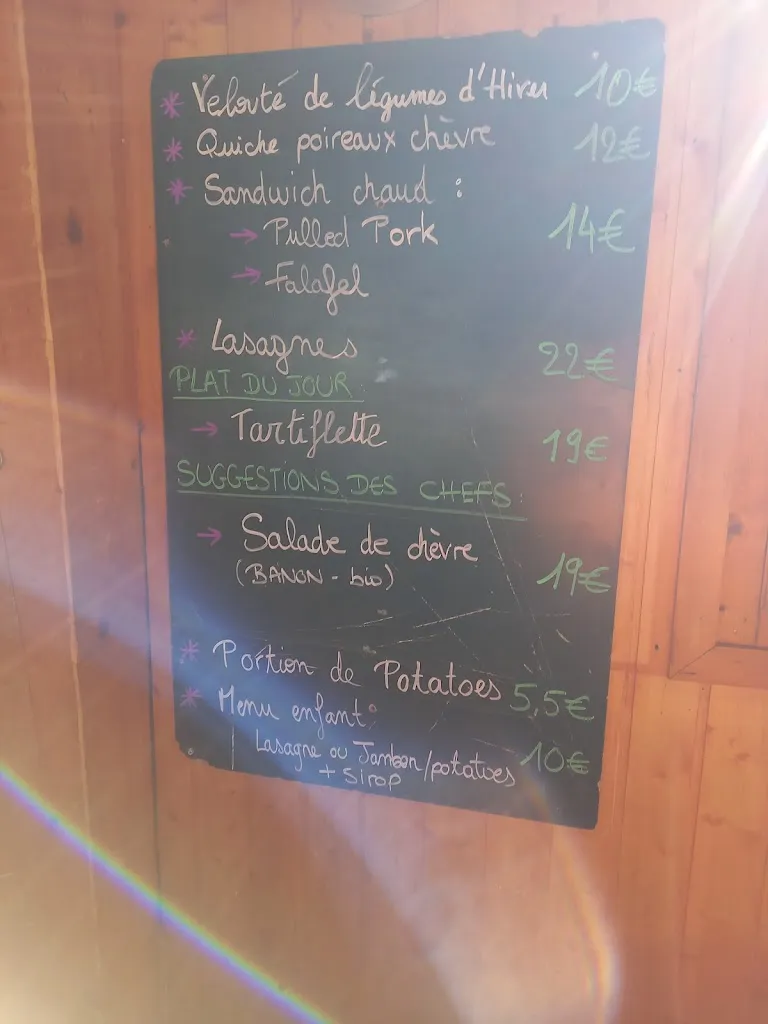 * Velouté de légumes d'Hiver 10€
* Quiche poireaux chèvre 12€
* Sandwich chaud :
→ Pulled Pork 14€
→ Falafel
* Lasagnes 22€
PLAT DU JOUR :
→ Tartiflette 19€
SUGGESTIONS DES CHEFS :
→ Salade de chèvre
(BANON - bio) 19€
* Portion de Potatoes 5,5€
* Menu enfant :
Lasagne ou Jambon/potatoes 10€
+ Sirop